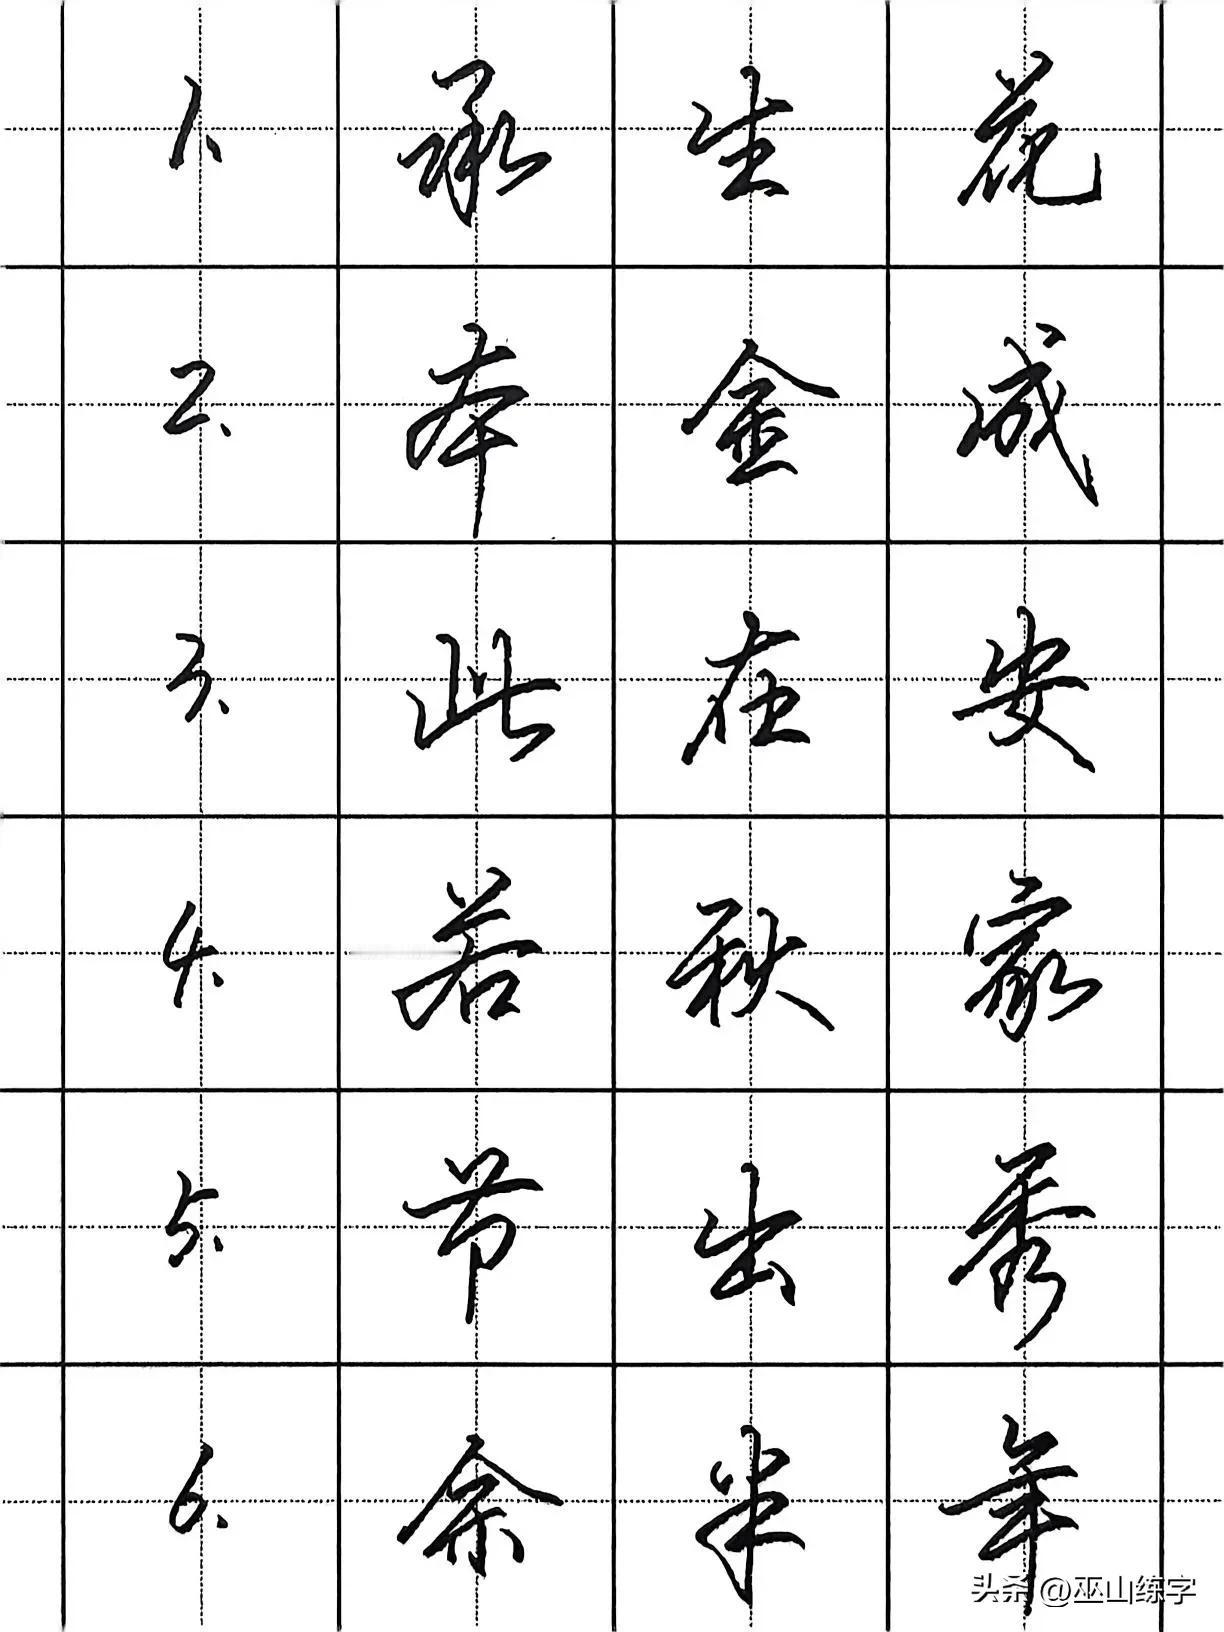 1、承生花
2、本金成
3、此在安
4、若秋家
5、节出秀
6、余半年
头条 @巫山练字